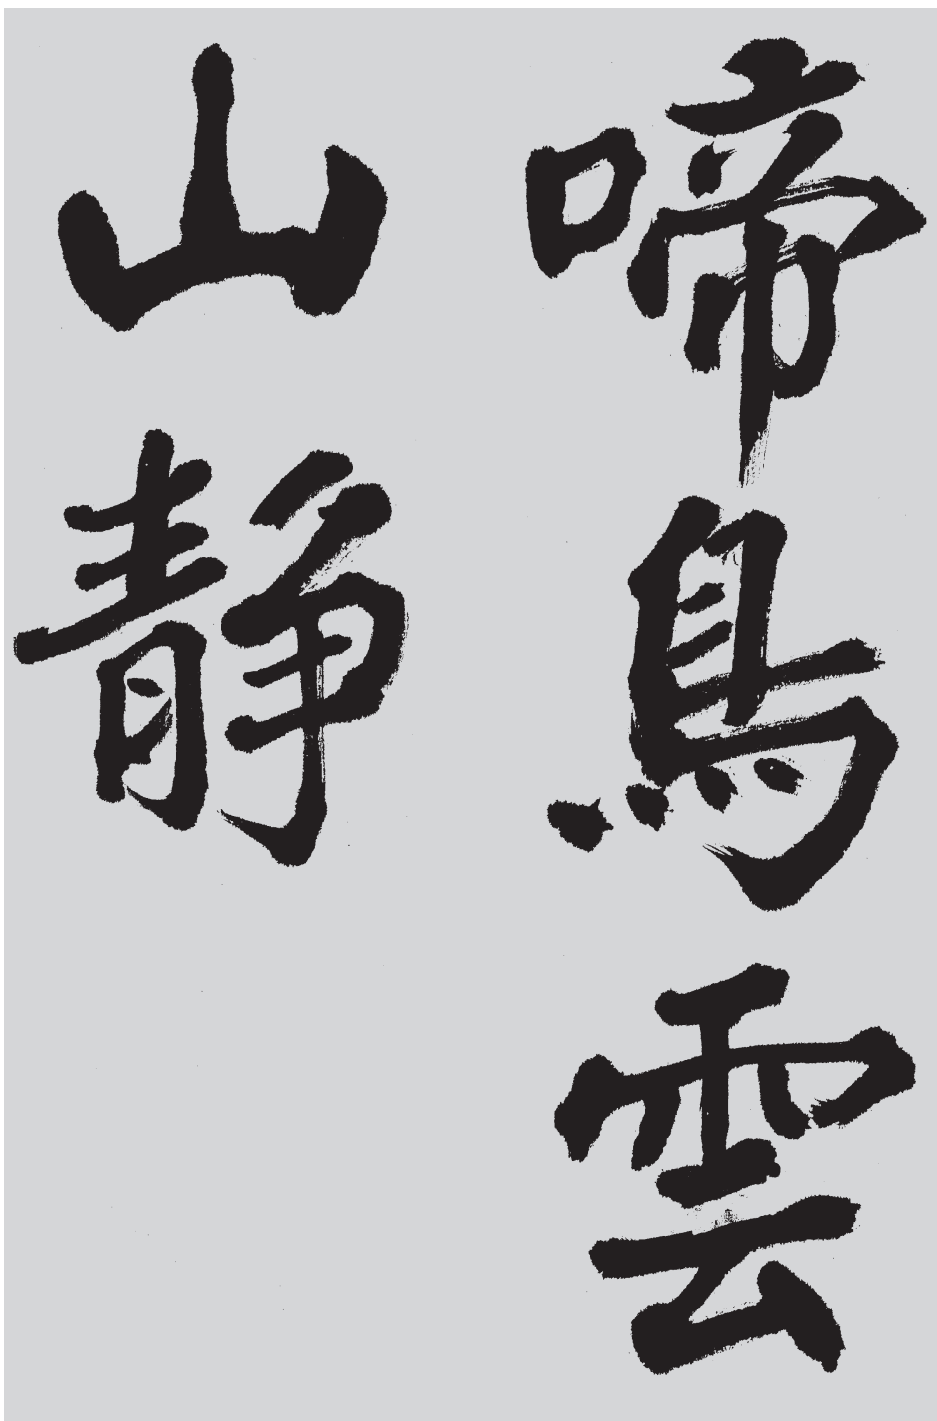 啼鳥雲
山静